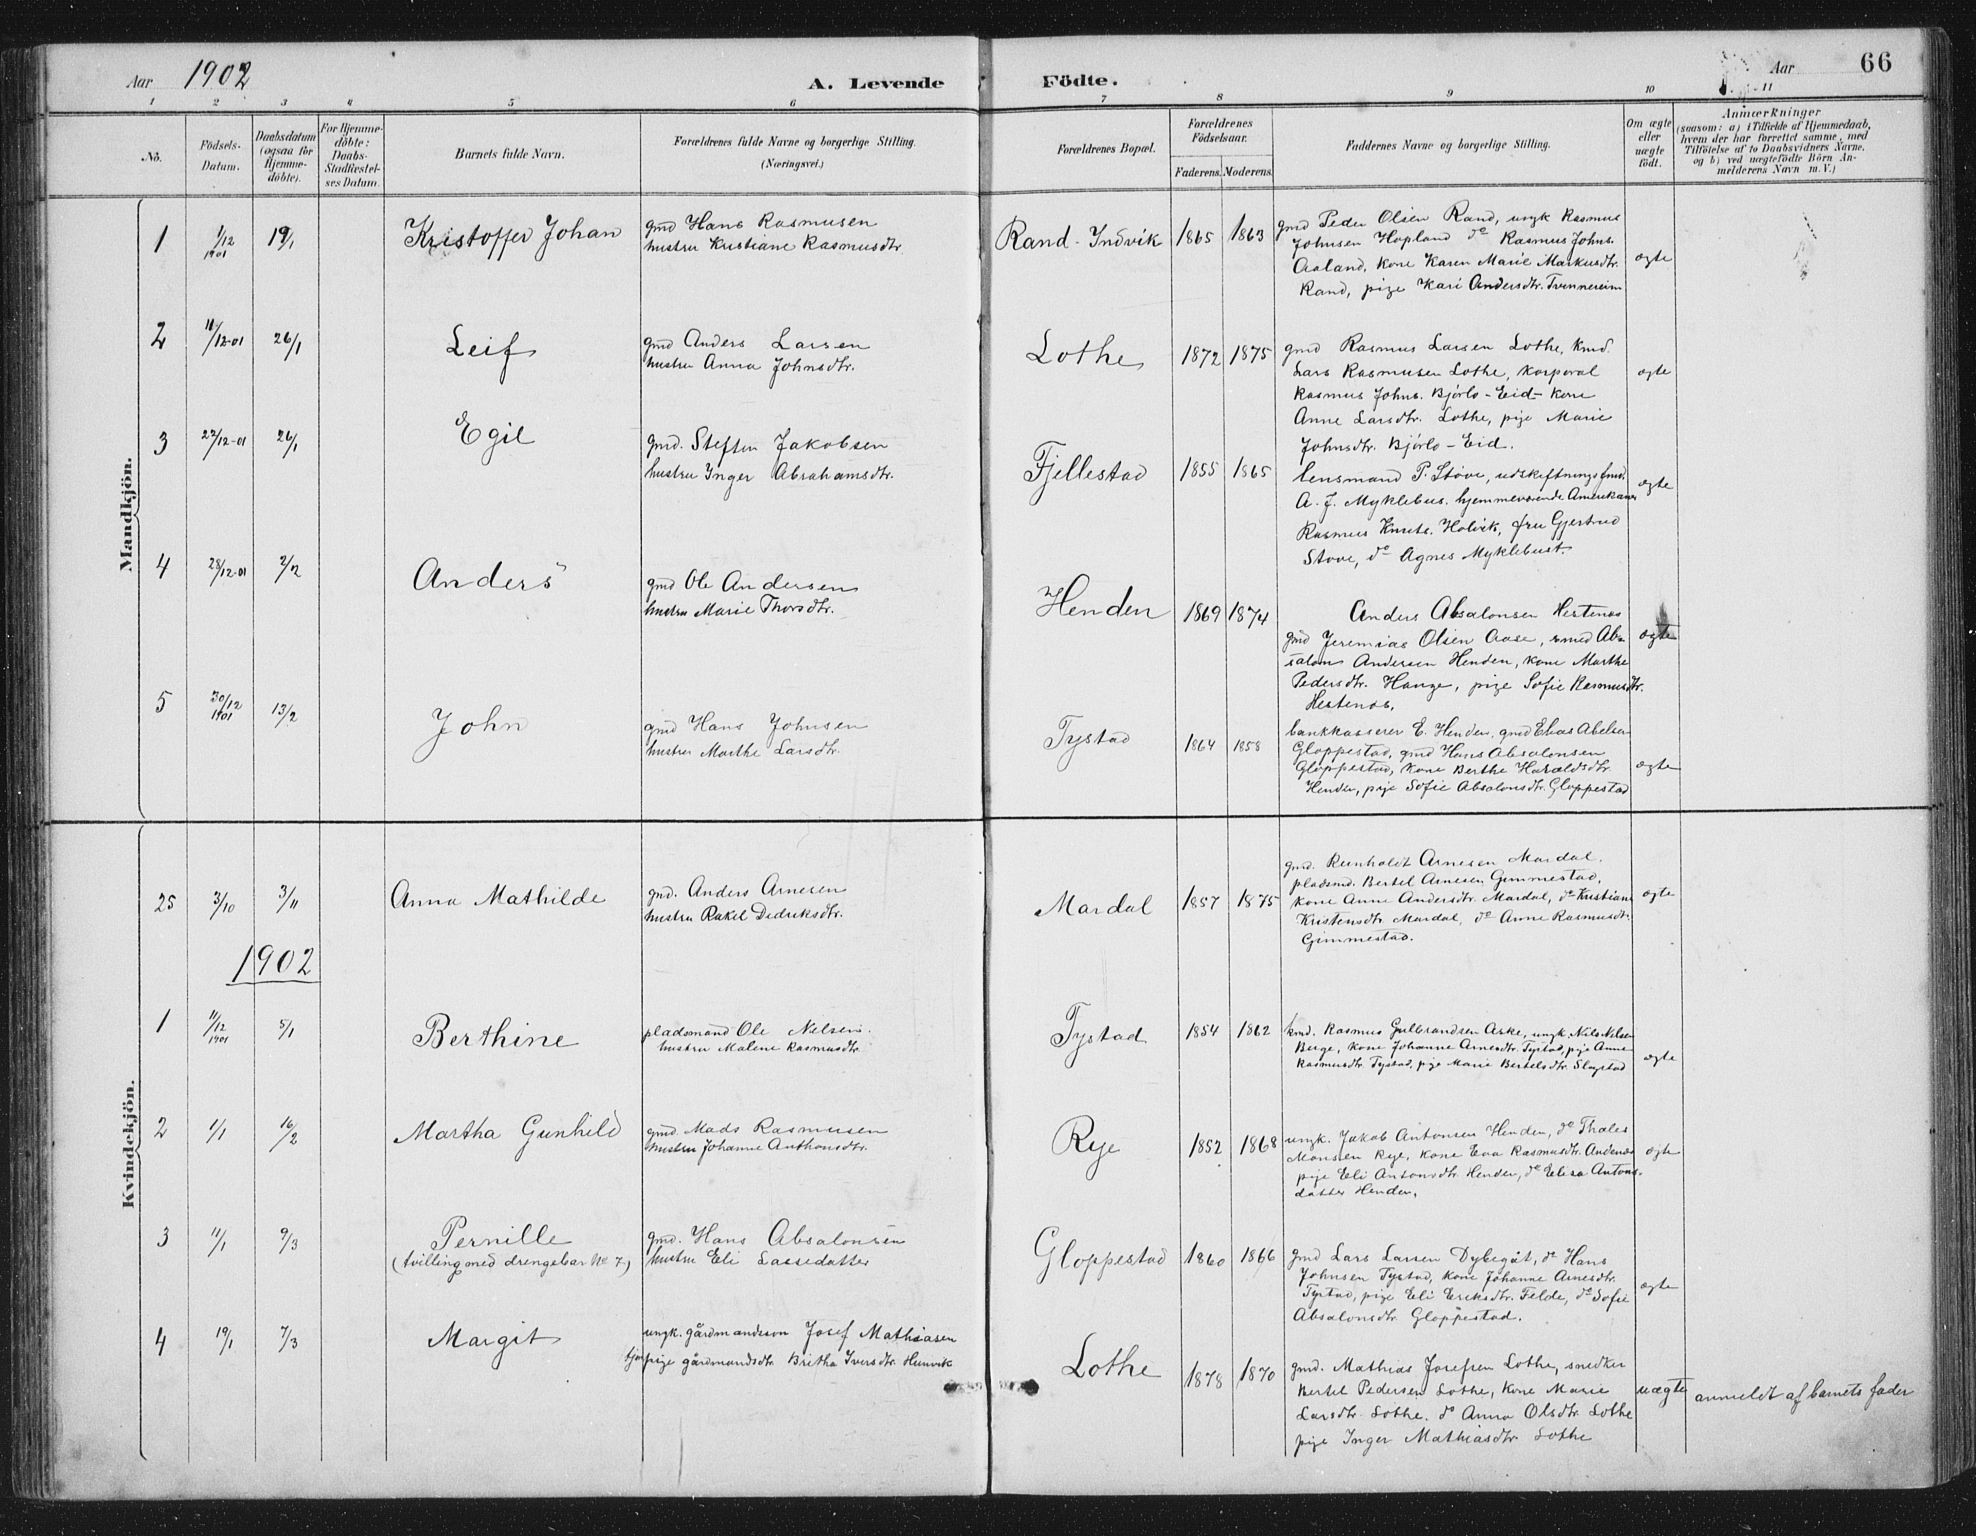 Aar 1902
A. Levende Födte.
Aar 66
1 2 3 4 5 6 7 8 9 10 11
No.
Födsels-
Datum.
Daabsdatum
(ogsaa for
Hjemme-
döbte).
For Hjemme-
döbte:
Daabs-
Stadfæstel-
ses Datum.
Barnets fulde Navn.
Forældrenes fulde Navne og borgerlige Stilling.
(Næringsvei.)
Forældrenes Bopæl.
Forældrenes
Födselsaar.
Faderens. Moderens.
Faddernes Navne og borgerlige Stilling.
Om ægte
eller
uægte
födt.
Anmærkninger
(saasom: a) i Tilfælde af Hjemmedaab,
hvem der har forrettet samme, med
Tilföielse af to Daabsvidners Navne.
og b) ved uægtefödte Börn An-
melderens Navn m. V.)
Mandkjön.
1 1/12 1901 19/1 Kristoffer Johan
gmd Hans Rasmusen
hustru Kristiane Rasmusdtr.
Rand - Indvik 1865 1863
gmd Peder Olsen Rand, ungk Rasmus
Johnsen Hopland do Rasmus Johns.
Aaland, kone Karen Marie Markusdtr.
Rand, pige Kari Andersdtr. Tvinnereim
ægte
2 11/12-01 26/1 Leif
gmd Anders Larsen
hustru Anna Johnsdtr.
Lothe 1872 1875
gmd Rasmus Larsen Lothe, kmd.
Lars Rasmusen Lothe, korporal
Rasmus Johns. Bjørlo - Eid - kone
Anne Larsdtr. Lothe, pige Marie
Johnsdtr. Bjørlo - Eid.
ægte
3 22/12-01 26/1 Egil
gmd. Steffen Jakobsen
hustru Inger Abrahamsdtr.
Fjellestad 1855 1865
lensmand P. Støve, udskiftningsfmd.
A. J. Myklebus. hjemmeværende Amerikaner
Rasmus Knuts. Holvik, fru Gjertrud
Støve, do Agnes Myklebust.
ægte
4 28/12-01 2/2 Anders
gmd Ole Andersen
hustru Marie Thorsdtr.
Henden 1869 1874
Anders Absalonsen Hestenes
gmd Jeremias Olsen Aase, smed Ab-
salom Andersen Henden, kone Marthe
Pedersdtr. Hauge, pige Sofie Rasmusdtr.
Hestenes.
ægte
5 30/12 1901 13/2 John
gmd Hans Johnsen
hustru Marthe Larsdtr.
Tystad 1864 1858
bankkasserer E. Henden, gmd Elias Abelsen
Gloppestad, gmd Hans Absalonsen
Gloppestad, kone Berthe Haraldsdtr.
Henden, pige Sofie Absalonsdtr. Gloppestad
ægte
Kvindekjön.
25 3/10 3/11 Anna Mathilde
gmd. Anders Arnesen
hustru Rakel Didriksdtr.
Mardal 1857 1875
gmd. Reinholdt Arnesen Mardal.
pladsmd. Bertel Arnesen Gimmestad,
kone Anne Andersdtr. Mardal, do Kristiane
Kristensdtr Mardal, do Anne Rasmusdtr.
Gimmestad.
ægte
1902
1 11/12 1901 5/1 Berthine
pladsmand Ole Nelsen.
hustru Malene Rasmusdtr.
Tystad 1854 1862
kmd. Rasmus Gulbrandsen Aske, ungk Nils Nilsen
Berge, kone Johanne Arnesdtr. Tystad, pige Anne
Rasmusdtr Tystad, pige Marie Bertelsdtr. Slagstad
ægte
2 1/1 16/2 Martha Gunhild
gmd. Mads Rasmusen
hustru Johanne Anthonsdtr.
Rye 1852 1868
ungk. Jakob Antonsen Henden, do Thales
Monsen Rye, kone Eva Rasmusdtr. Andenæs
pige Eli Antonsdtr. Henden, do Elisa Antons-
datter Henden.
ægte
3 11/1 9/3 Pernille
(tvilling med drengebar No 7.)
gmd. Hans Absalonsen
hustru Eli Lassedatter
Gloppestad 1860 1866
gmd Lars Larsen Dybegåt, do Hans
Johnsen Tystad, kone Johanne Arnesdtr.
Tystad, pige Eli Eriksdtr. Felde, do Sofie
Absalonsdtr. Gloppestad.
ægte
4 19/1 7/3 Margit
ungk. gårdmandssøn Josef Mathiasen
pige gårdmandsdtr. Britha Iversdtr.
Lothe 1878 1870
gmd. Mathias Josefsen Lothe, snedker
Bertel Pedersen Lothe, kone Marie
Larsdtr. Lothe. do Anna Olsdtr. Lothe
pige Inger Mathiasdtr. Lothe
uægte anmeldt af barnets fader